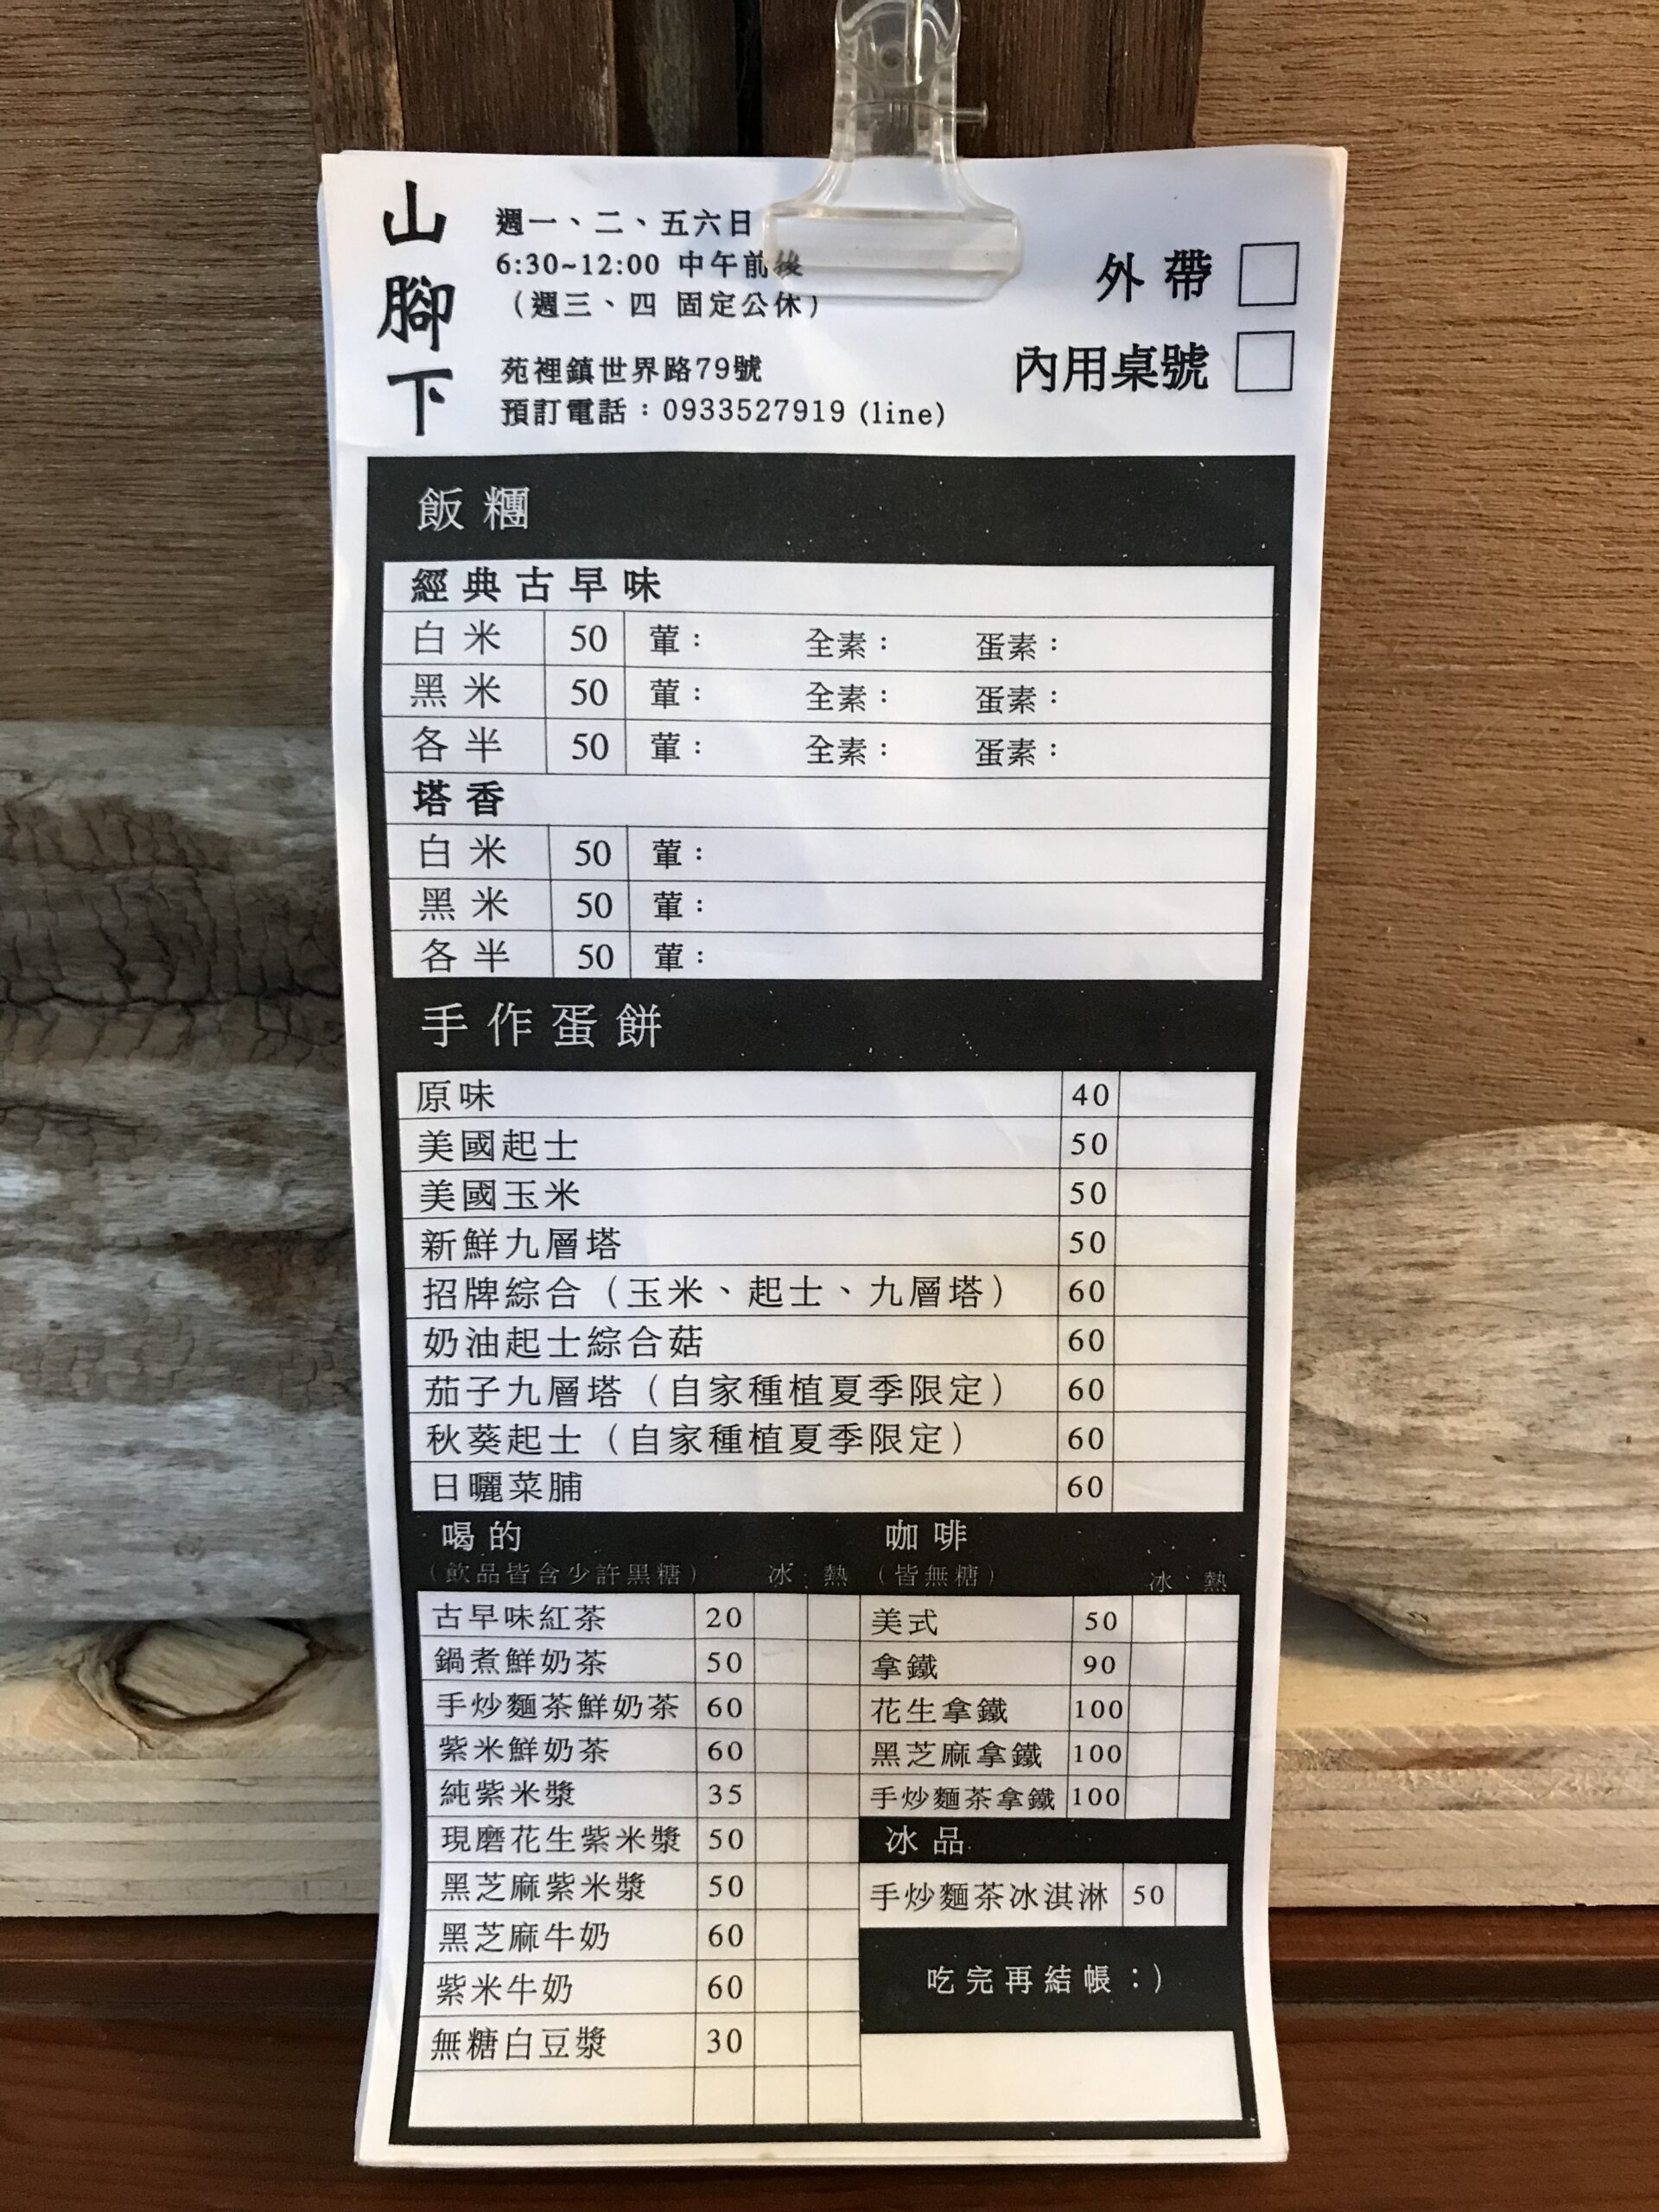 山腳下
週一、二、五六日
6:30~12:00 中午前後
（週三、四 固定公休）
苑裡鎮世界路79號
預訂電話：0933527919 (line)
外帶
內用桌號
飯糰
經典古早味
白米 50 葷： 全素： 蛋素：
黑米 50 葷： 全素： 蛋素：
各半 50 葷： 全素： 蛋素：
塔香
白米 50 葷：
黑米 50 葷：
各半 50 葷：
手作蛋餅
原味 40
美國起士 50
美國玉米 50
新鮮九層塔 50
招牌綜合（玉米、起士、九層塔） 60
奶油起士綜合菇 60
茄子九層塔（自家種植夏季限定） 60
秋葵起士（自家種植夏季限定） 60
日曬菜脯 60
喝的
（飲品皆含少許黑糖） 冰 熱
古早味紅茶 20
鍋煮鮮奶茶 50
手炒麵茶鮮奶茶 60
紫米鮮奶茶 60
純紫米漿 35
現磨花生紫米漿 50
黑芝麻紫米漿 50
黑芝麻牛奶 60
紫米牛奶 60
無糖白豆漿 30
咖啡
（皆無糖） 冰 熱
美式 50
拿鐵 90
花生拿鐵 100
黑芝麻拿鐵 100
手炒麵茶拿鐵 100
冰品
手炒麵茶冰淇淋 50
吃完再結帳：）